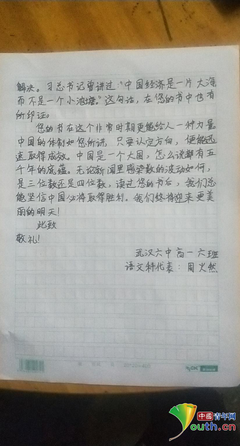 解决。习总书记曾讲过“中国经济是一片大海
而不是一个小池塘。”这句话，在您的书中也有
所印证。
您的书在这个非常时期更能给人一种力量
中国的体制如您所说，只要认定方向，便能迅
速取得成效。中国是一个大国，怎么说都有五
千年的底蕴。无论新闻里确诊数的波动如何，
是三位数还是四位数，读过您的书后，我们总
能坚信中国必将取得胜利。我们终将迎来更美
丽的明天！
此致
敬礼！
武汉六中高一六班
语文科代表：周
中国青年网
youth.cn